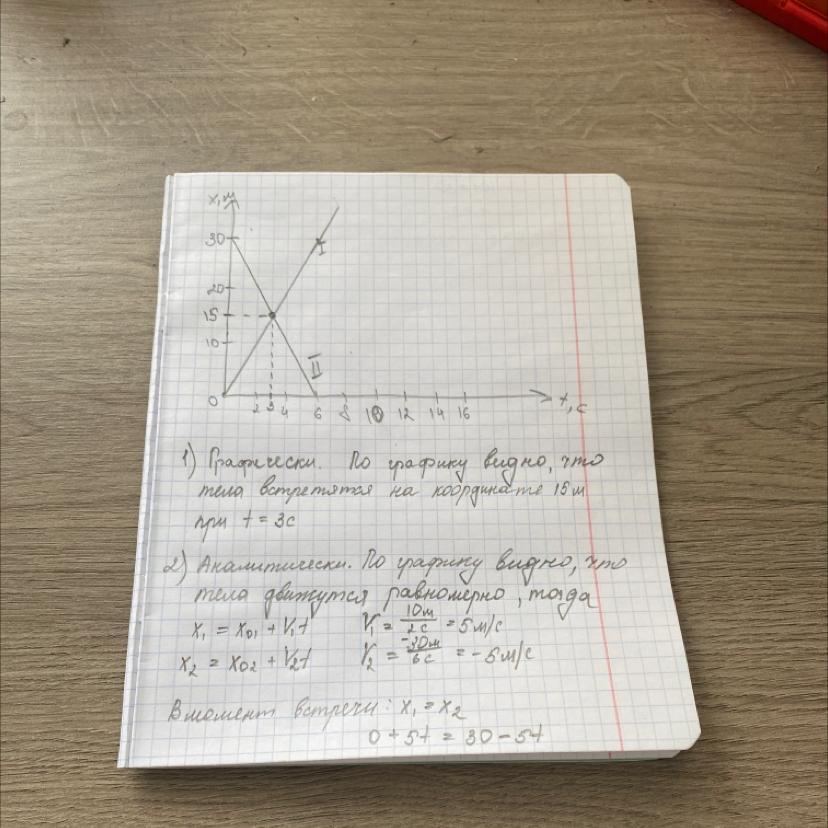 x,м
30
I
20
15
10
II
0 2 3 4 6 8 10 12 14 16 t,c
1) Графически. По графику видно, что
тела встретятся на координате 15 м
при t = 3с
2) Аналитически. По графику видно, что
тела движутся равномерно, тогда
x₁ = x₀₁ + V₁t V₁ = 10м/2с = 5 м/с
x₂ = x₀₂ + V₂t V₂ = -30м/6с = -5 м/с
В момент встречи: x₁ = x₂
0 + 5t = 30 - 5t